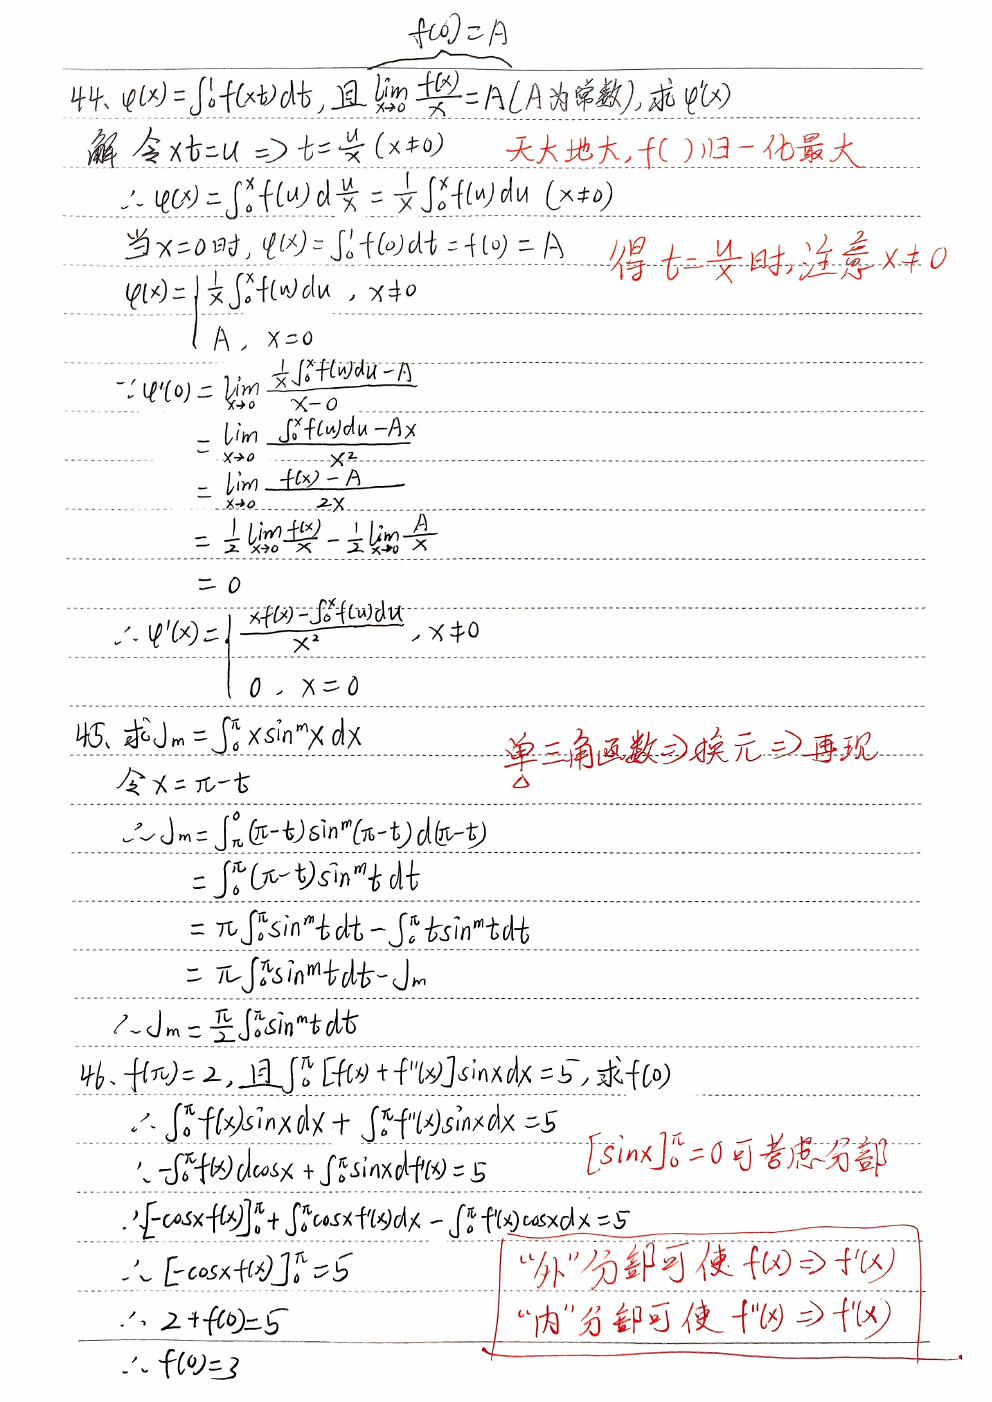 f(0)=A
44、φ(x)=∫₀¹f(xt)dt,且lim_{x→0} f(x)/x=A(A为常数),求φ'(x)
解 令xt=u ⇒ t=u/x (x≠0)
天大地大,f( )归一化最大
∴ φ(x)=∫₀ˣf(u)d u/x = 1/x ∫₀ˣf(u)du (x≠0)
当x=0时,φ(x)=∫₀¹f(0)dt=f(0)=A
得 t=u/x 时,注意x≠0
φ(x)={ 1/x ∫₀ˣf(u)du , x≠0
A , x=0
∵φ'(0)=lim_{x→0} (1/x ∫₀ˣf(u)du-A)/(x-0)
=lim_{x→0} (∫₀ˣf(u)du-Ax)/x²
=lim_{x→0} (f(x)-A)/2x
=1/2 lim_{x→0} f(x)/x - 1/2 lim_{x→0} A/x
=0
∴φ'(x)={ (xf(x)-∫₀ˣf(u)du)/x² , x≠0
0 , x=0
45、求Jm=∫₀^π x sin^m x dx
单三角函数⇒换元⇒再现
令x=π-t
∴Jm=∫_π^0 (π-t)sin^m(π-t)d(π-t)
=∫₀^π (π-t)sin^m t dt
=π∫₀^π sin^m t dt-∫₀^π t sin^m t dt
=π∫₀^π sin^m t dt-Jm
∴Jm=π/2 ∫₀^π sin^m t dt
46、f(π)=2,且∫₀^π [f(x)+f''(x)]sinxdx=5,求f(0)
∴∫₀^π f(x)sinxdx+∫₀^π f''(x)sinxdx=5
[sinx]₀^π=0可考虑分部
∴-∫₀^π f(x)dcosx+∫₀^π sinxdf'(x)=5
∴[-cosxf(x)]₀^π+∫₀^π cosxf'(x)dx-∫₀^π f'(x)cosxdx=5
"外"分部可使 f(x)⇒f'(x)
∴[-cosxf(x)]₀^π=5
"内"分部可使 f''(x)⇒f'(x)
∴2+f(0)=5
∴f(0)=3